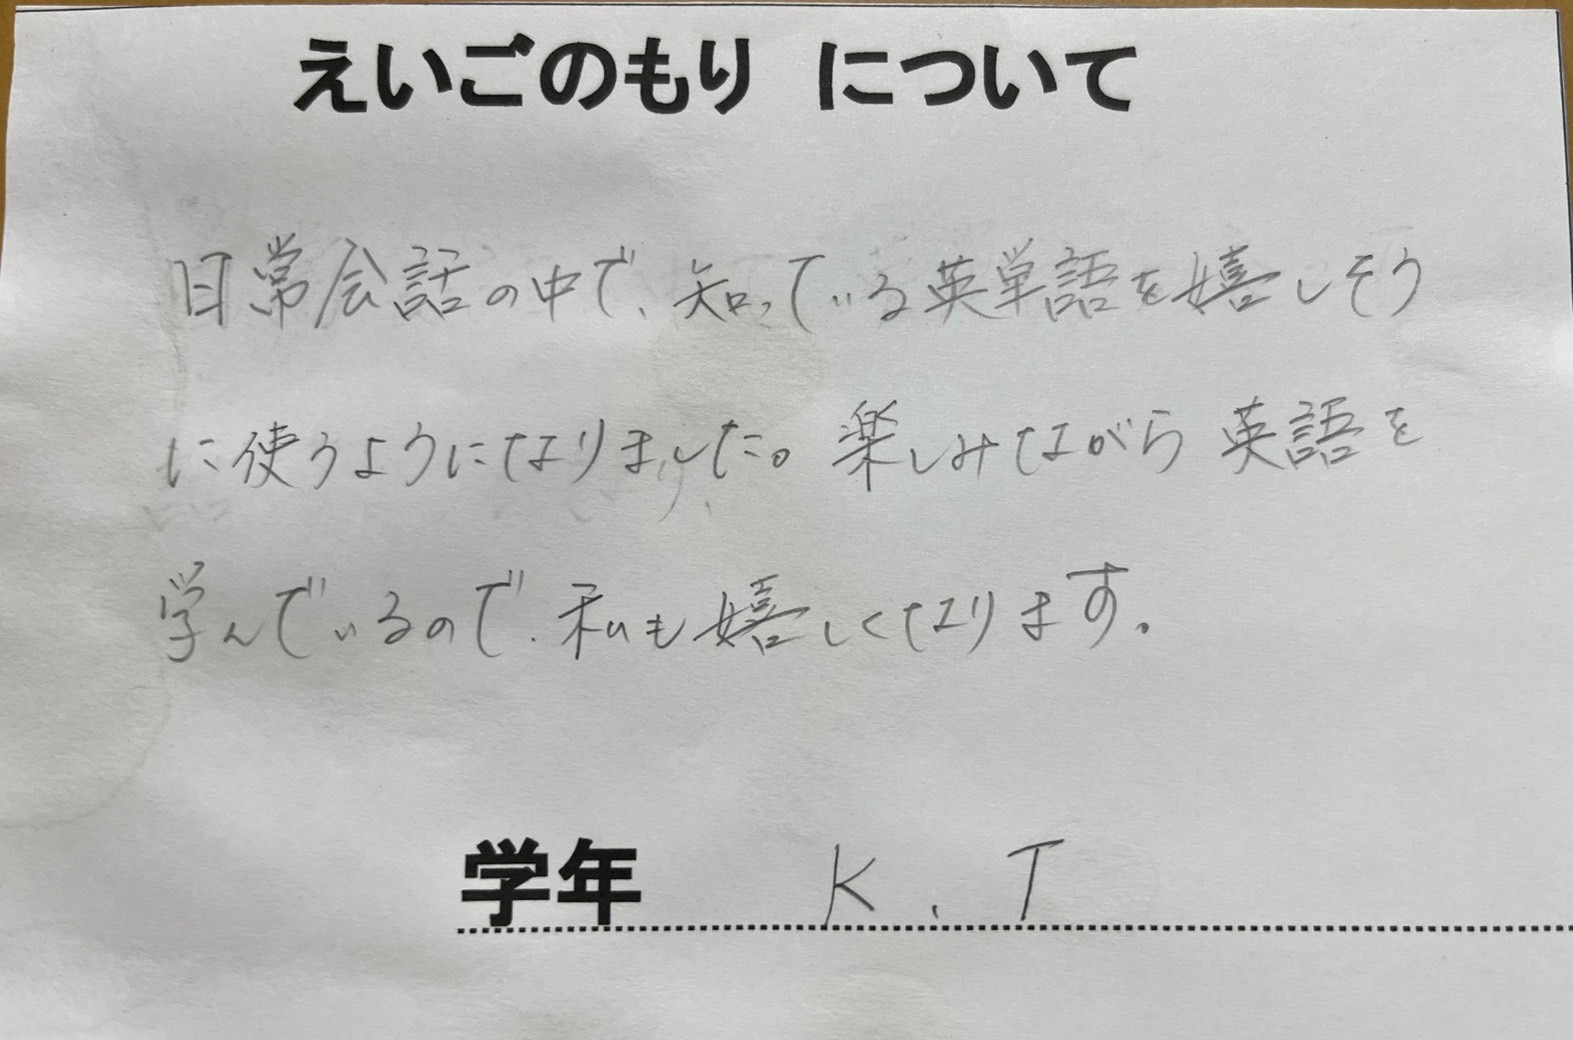 えいごのもり について
日常会話の中で、知っている英単語を嬉しそう
に使うようになりました。楽しみながら英語を
学んでいるので、私も嬉しくなります。
学年 K.T